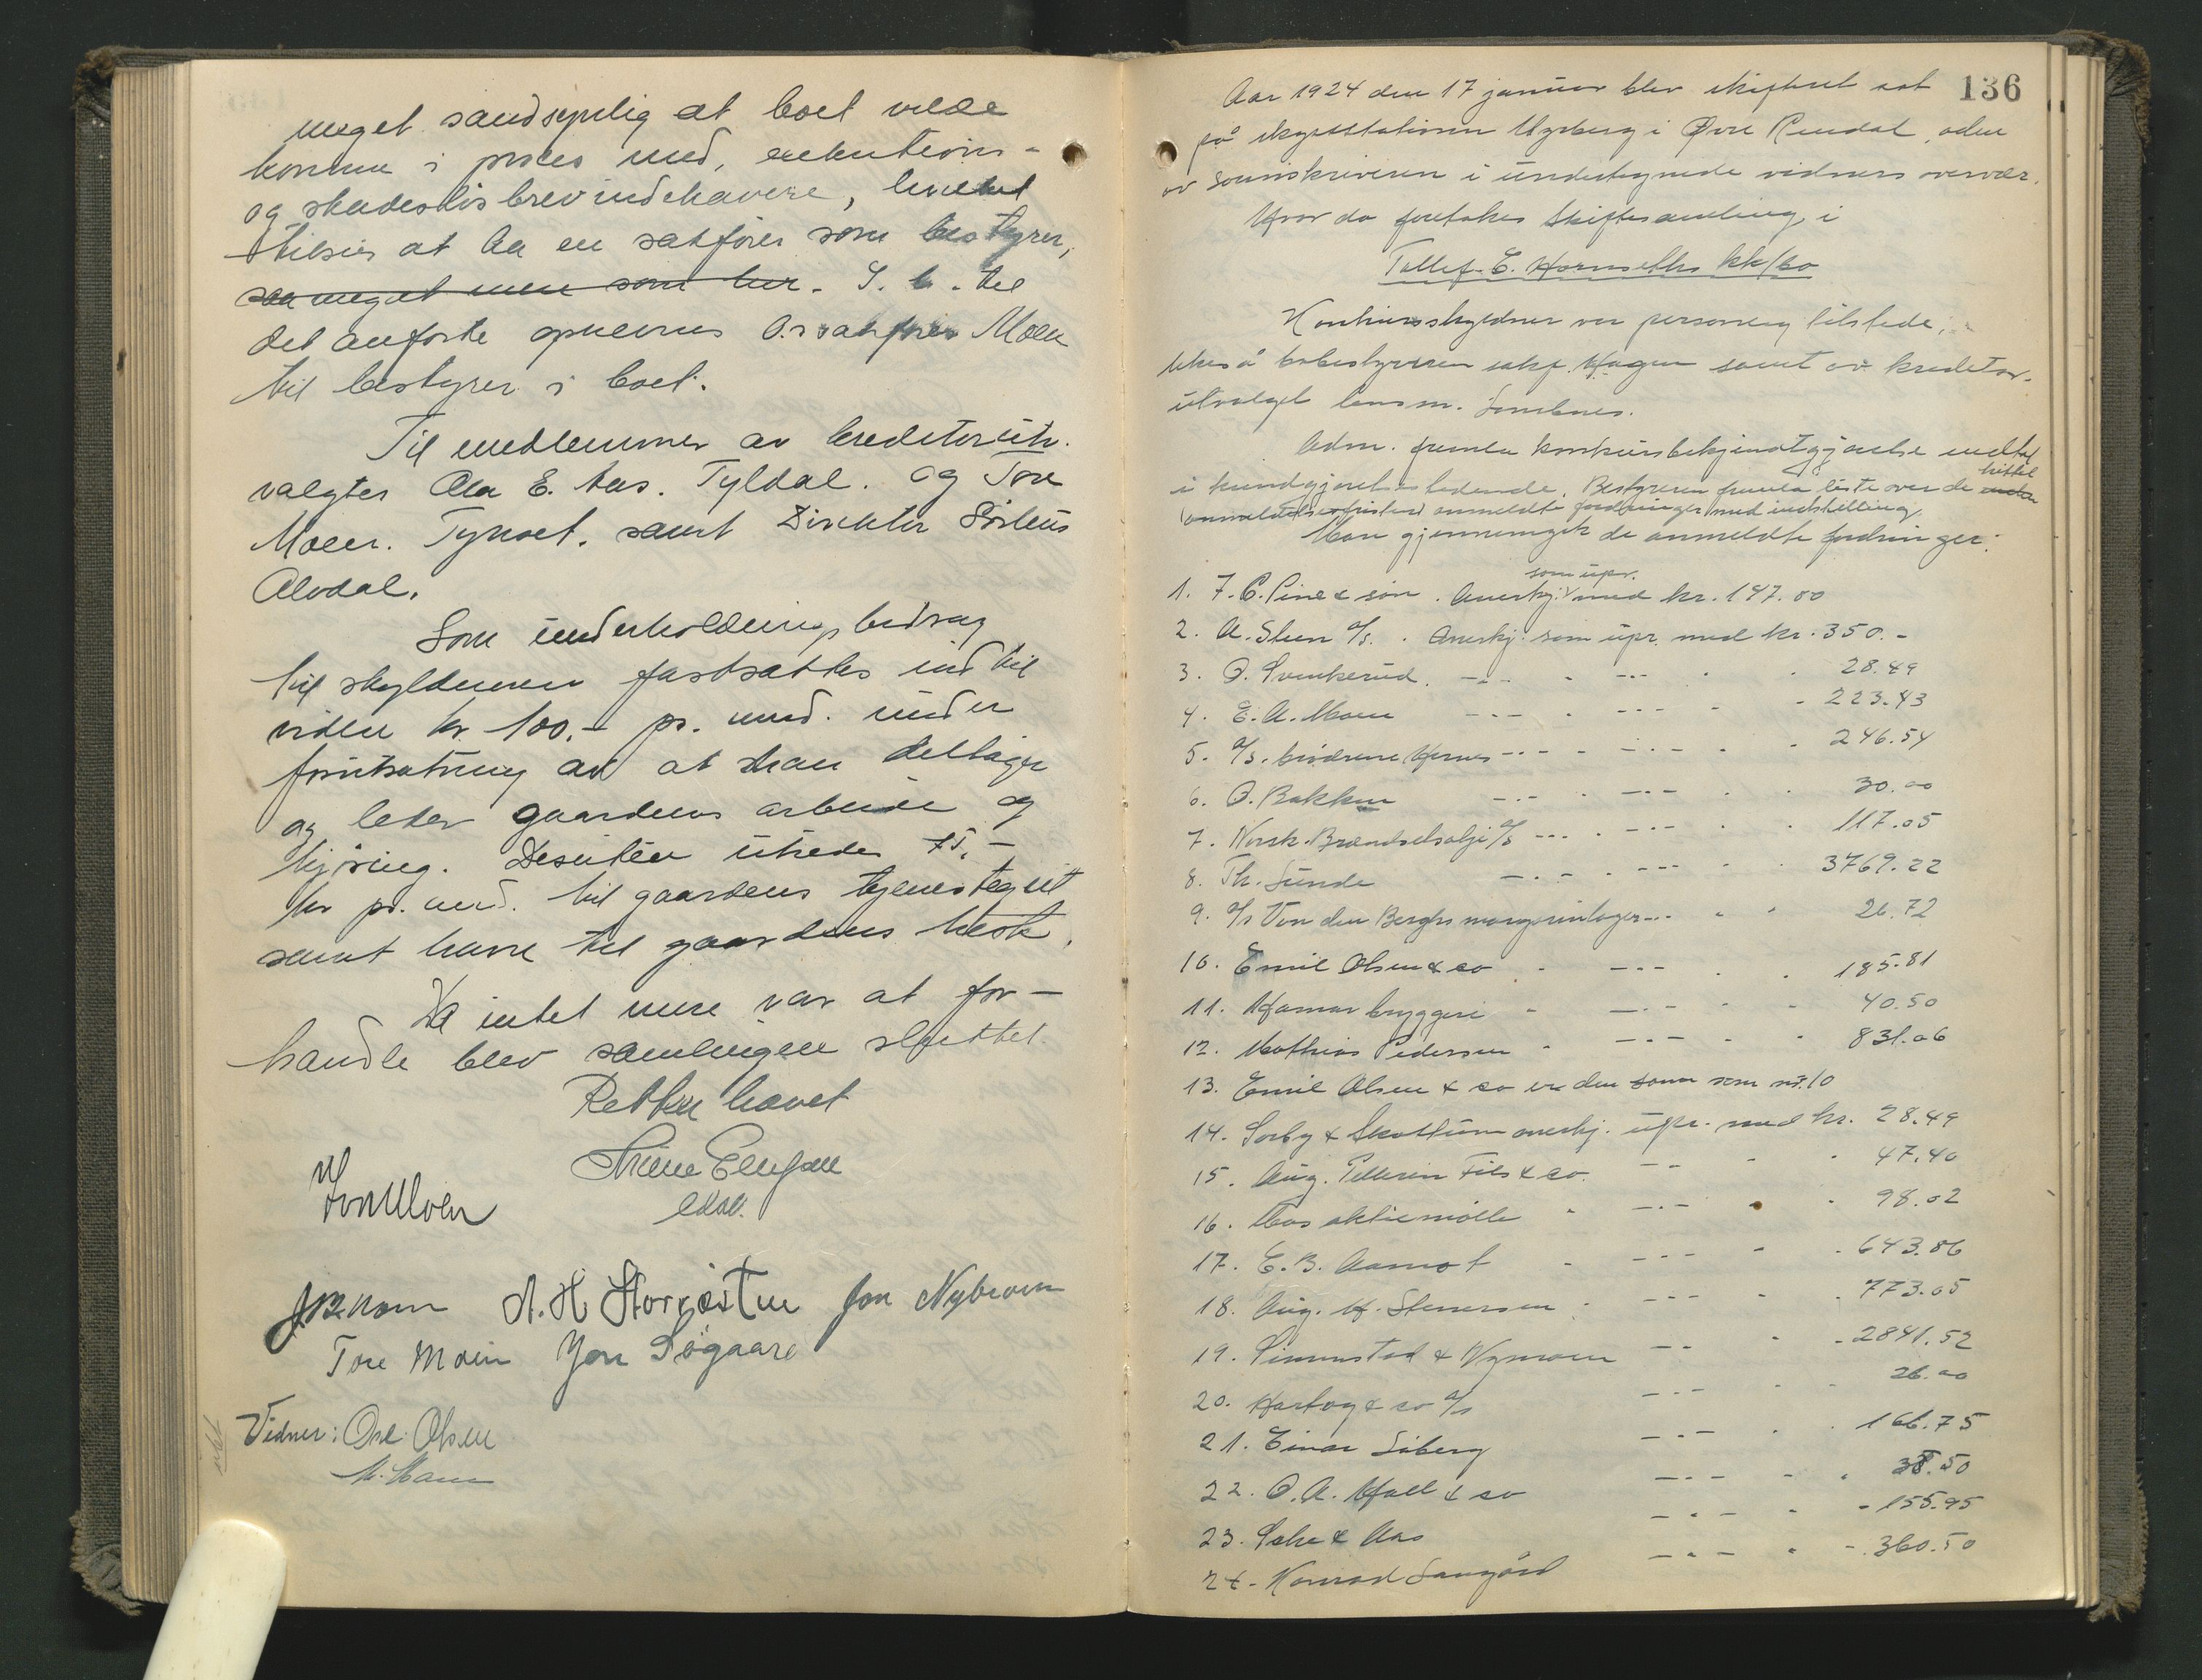 meget sandsynlig at boet vilde
komme i proces med, exekutions-
og skadesløsbrevindehavere, hvilket
tilsier at ha en sakfører som bestyrer,
saa meget mere som her. I. h. til
det anførte opnevnes O.r.sakfører Moen
til bestyrer i boet.
Til medlemmer av kreditorutv.
valgtes Ola E. Aas. Tyldal. og Tore
Moen. Tynset. samt Direktør
Alvdal.
Som underholdningsbidrag
til skyldneren fastsattes indtil
videre kr 100.- pr. mnd. under
forutsætning av at han deltager
og leder gaardens arbeide og
kjøring. Desuten utredes 75.-
kr pr. mnd. til gaardens tjenestegut
samt havre til gaardens hest.
Da intet mere var at for-
handle blev samlingen sluttet
Retten hævet
edsv.
A. H. Storrøsten Jon Nybroen
Tore Moen Jon Søgaard
Vidner: Ole Olsen
136
Aar 1924 den 17 januar blev skifteret sat
på skysstationen Berg i Øvre Rendal, aden
av sorenskriveren i undertegnede vidners overvær.
Hvor da foretokes skiftesamling i
Tollef E. Hornseths kk/bo
Konkursskyldner var personlig tilstede,
likeså bobestyreren sakf. Hagen samt av kreditor-
utvalget lensm.
Adm. fremla konkursbekjendtgjørelse indtat
i kundgjørelsestidende. Bestyreren fremla liste over de inden hittil
anmeldelsesfristen anmeldte fordringer med indstilling.
Man gjennemgik de anmeldte fordringer:
som upr.
1. F. C. Pine & søn. Anerkj. med kr. 147.00
2. A. Steen A/s. . Anerkj. som upr. med kr. 350.-
3. O. Svenkerud. -.- - --- . . 28.49
4. E. A. Moen --- . --- . - 223.43
5. A/s. brødrene Hernes --- - --- . - 246.54
6. O. Bakken -.- . --- . . 30.00
7. Norsk. Brændselsolje A/S --- . --- . . 117.05
8. Th. Sunde -.- . --- . . 3769.22
9. A/s Van den Berghs margarinlager --- . . 26.72
10. Emil Olsen & co . - --- . . 185.81
11. Hamar bryggeri - --- . - 40.50
12. Mathias Pedersen - --- . . 831.06
13. Emil Olsen & co er den samme som nr. 10
14. Sørby & Skattum anerkj. upr. med kr. 28.49
15. Aug. Pellerin Fils & co. -- . . 47.40
16. Mos aktiemølle - --- . . 98.02
17. E. B. Aamot - --- - . 643.86
18. Aug. H. Stenersen . --- . . 773.05
19. Simenstad & Nymoen -- . - 2841.52
20. Hartog & co A/s --- . . 26.00
21. Einar Siberg --- . . 166.75
22. O. A. Hall & co --- - . 38.50
23. & Aas --- . - 155.95
24. Konrad Langård --- . - 360.50